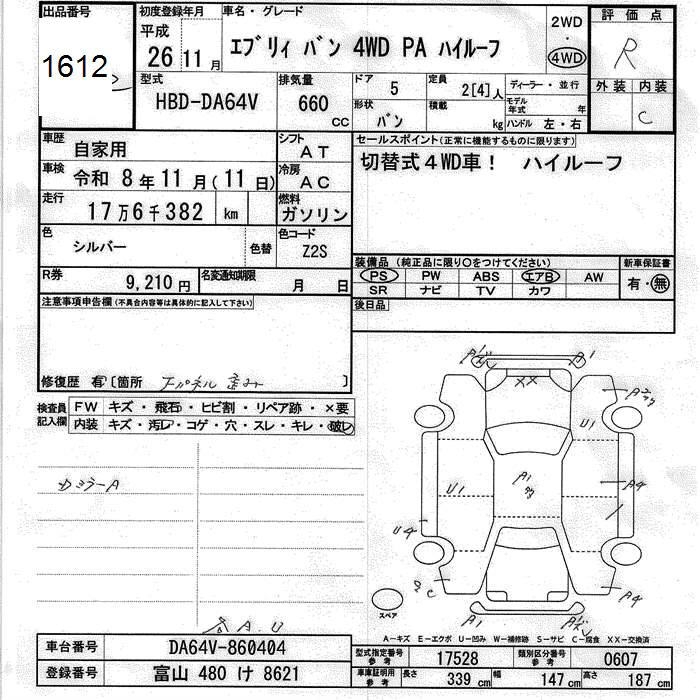 出品番号
1612
初度登録年月
平成
26 11月
車名・グレード
エブリィ バン 4WD PA ハイルーフ
2WD
・
4WD
評価点
R
外装 内装
C
型式
HBD-DA64V
排気量
660
CC
ドア
5
定員
2[4]人
形状
バン
積載
kg
ディーラー・並行
モデル年式
年
ハンドル 左・右
車歴
自家用
シフト
AT
車検
令和 8年11月(11日)
冷房
AC
走行
17万6千382 km
燃料
ガソリン
色
シルバー
色替
色コード
Z2S
R券
9,210円
名変通知期限
月 日
セールスポイント(正常に機能するものに限ります)
切替式4WD車! ハイルーフ
装備品(純正品に限り〇をつけてください)
PS PW ABS エアB AW
SR ナビ TV カワ
新車保証書
有・無
後日品
注意事項申告欄(不具合内容等は具体的に記入して下さい)
修復歴 有〔箇所
〕
検査員
記入欄
FW キズ・飛石・ヒビ割・リペア跡・×要
内装 キズ・汚レ・コゲ・穴・スレ・キレ・破レ
A1
A1
XX
U1
A1
U1
A4
U4
A4
A1
スペア
A-キズ E-エクボ U-凹み W-補修跡 S-サビ C-腐食 XX-交換済
A.U
車台番号
DA64V-860404
登録番号
富山 480 け 8621
型式指定番号
参考
17528
類別区分番号
参考
0607
車庫証明用
参考
長さ
339 cm
幅
147 cm
高さ
187 cm